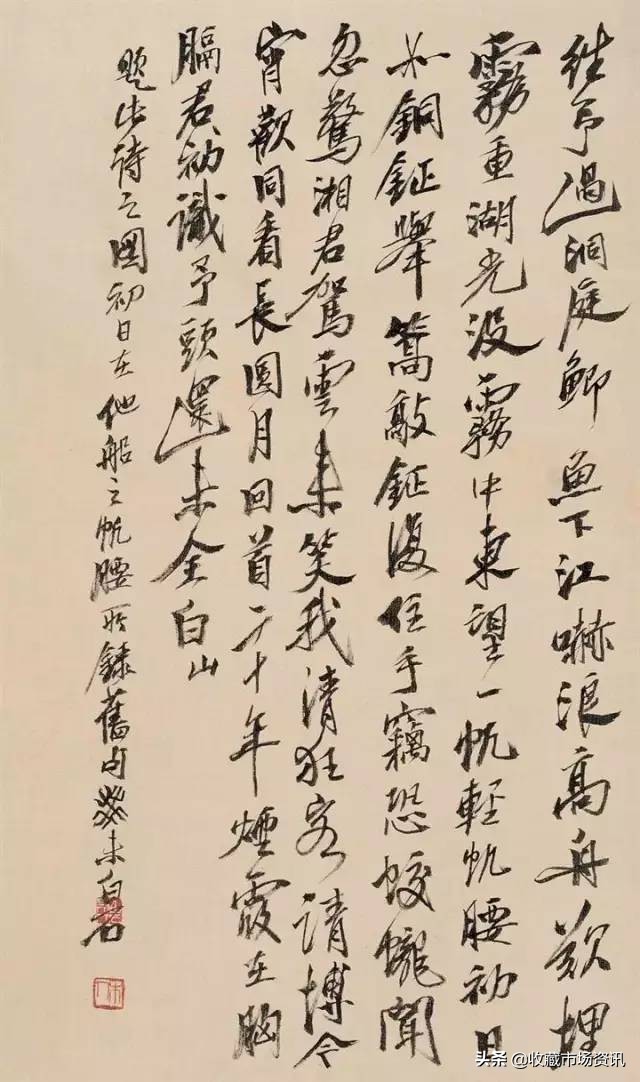 往予過洞庭鯽魚下江嚇浪高舟欲埋
霧重湖光没霧中東望一帆輕帆腰初日
如銅鉦舉篙敲鉦復住手竊恐蛟龍聞
忽驚湘君駕雲來笑我清狂客請博今
宵歡同看長圓月回首二十年煙霞在胸
膈君初識予頭還未全白山
題此詩之圖初日在他船之帆腰所錄舊句癸未白石
木人
头条 @收藏市场资讯